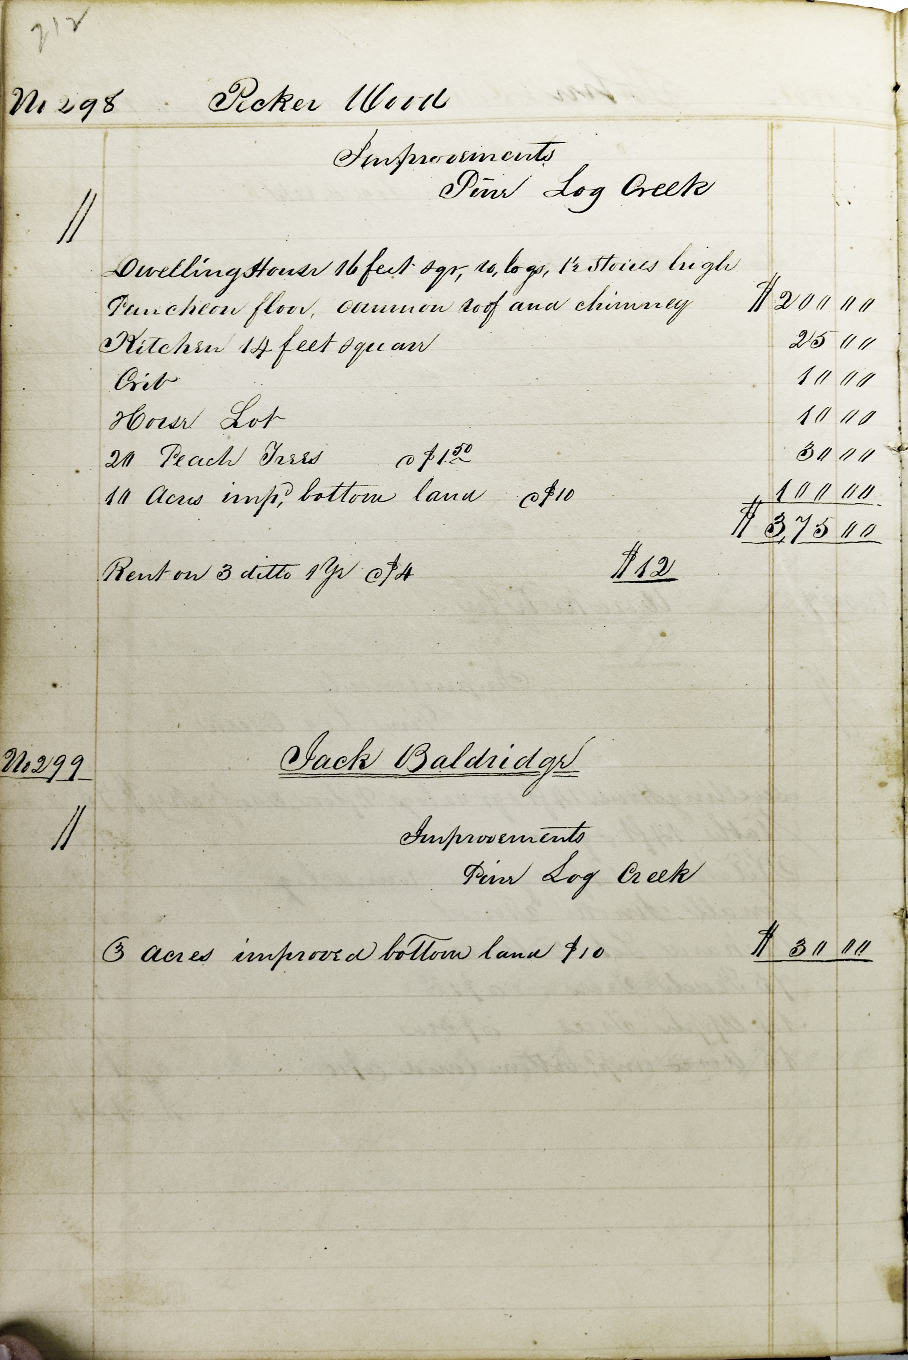 212
No 298 Picker Wood
Improvements
Pine Log Creek
//
Dwelling House 16 feet sqr, ro, logs, 1½ Stories high
Puncheon floor, common roof and chimney $ 200 00
Kitchen 14 feet square 25 00
Crib 10 00
Horse Lot 10 00
20 Peach Trees @ $1 50 30 00
10 Acres imp.d bottom land @ $10 100 00
$ 375 00
Rent on 3 ditto 1 Yr @ $4 $12
No 299 Jack Baldridge
//
Improvements
Pine Log Creek
3 acres improved bottom land $10 $ 30 00